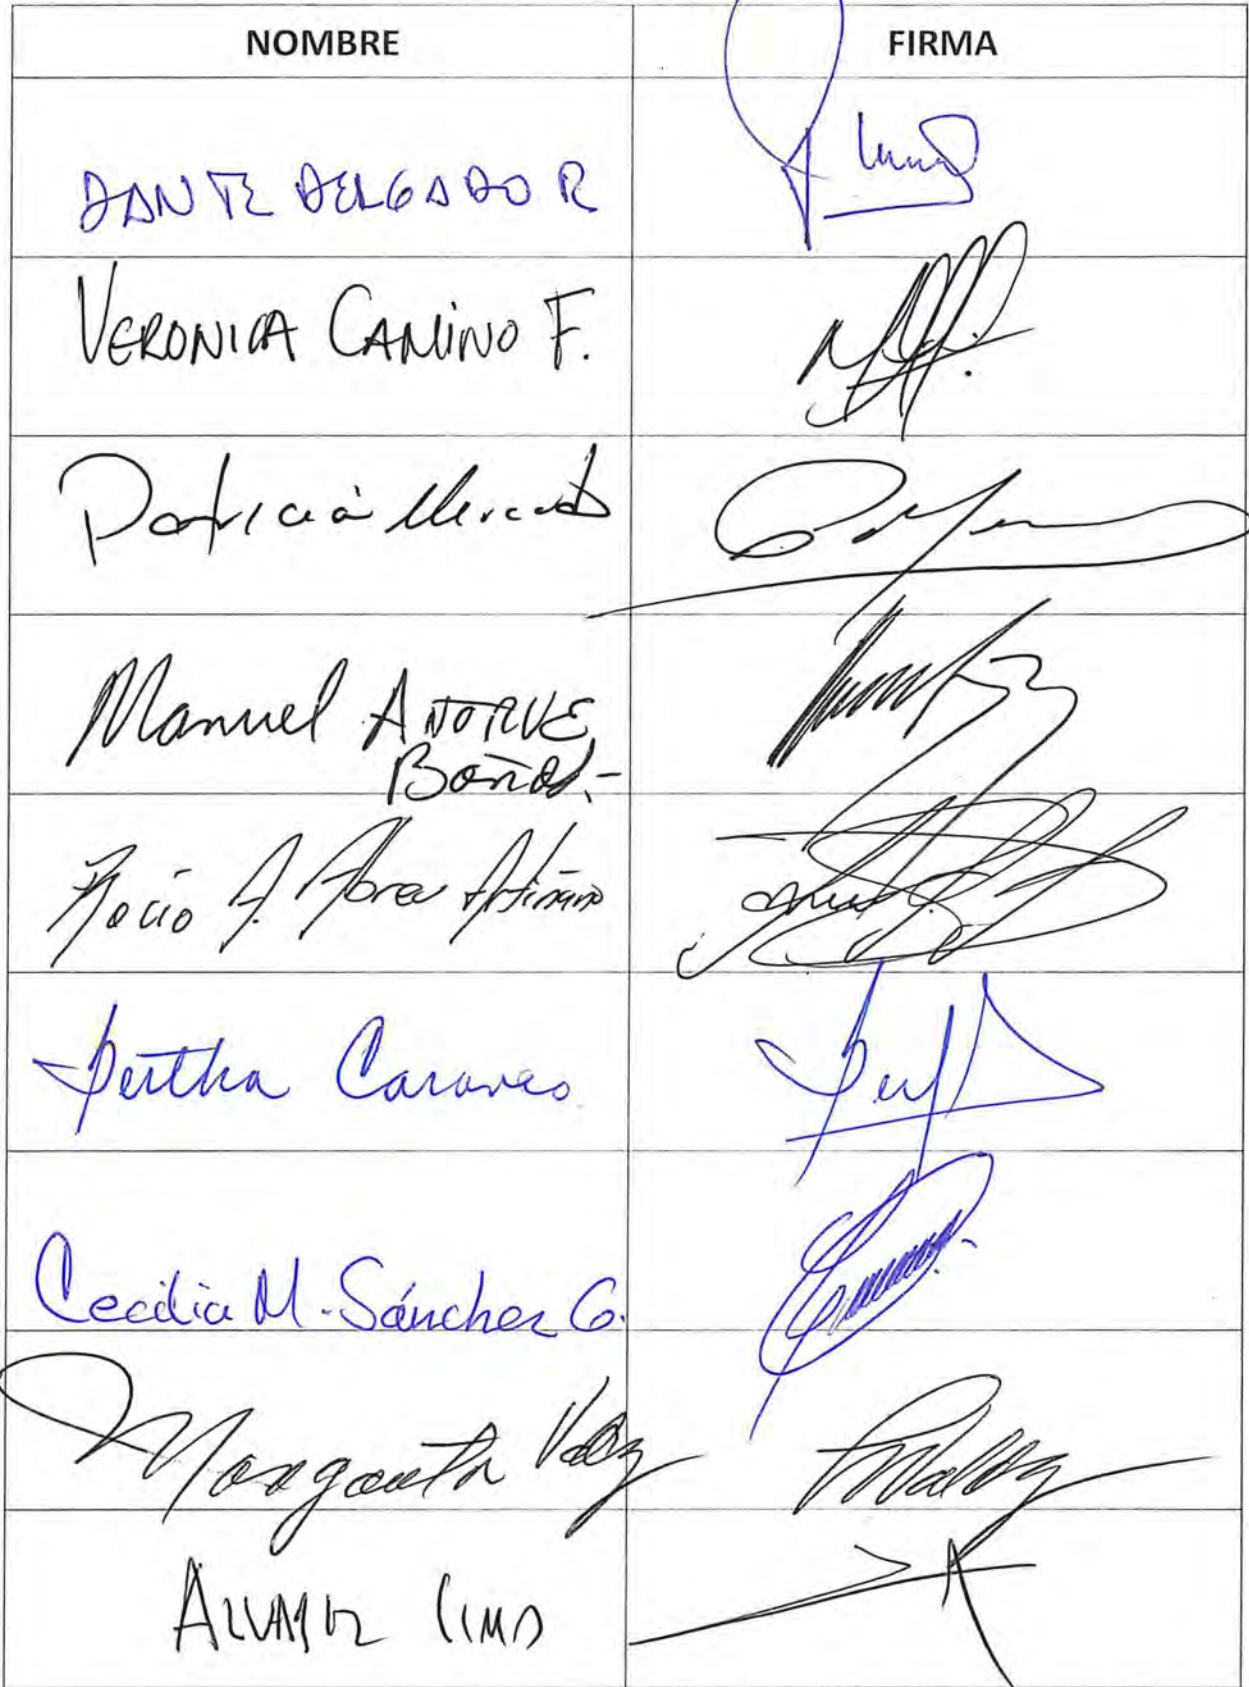 NOMBRE FIRMA
DANTE DELGADO R
VERONICA CAMINO F.
Patricia Mercado
Manuel AÑORVE
Baños.-
Rocío A. Abreu Artiñano
Bertha Caraveo
Cecilia M. Sánchez G.
Margarita Valdez
ALVAREZ LIMA